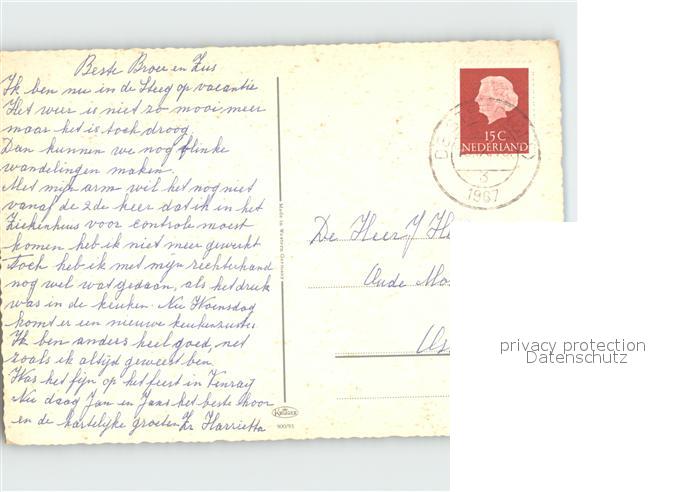 Beste Broer en Zus
Ik ben nu in de Steeg op vacantie
Het weer is niet zo mooi meer
maar het is toch droog.
Dan kunnen we nog flinke
wandelingen maken.
Met mijn arm wil het nog niet
vanaf de 2de keer dat ik in het
Ziekenhuis voor controle moest
komen heb ik niet meer gewerkt
Toch heb ik met mijn rechterhand
nog wel wat gedaan, als het druk
was in de keuken. Nu Woensdag
komt er een nieuwe keukenzuster.
Ik ben anders heel goed, net
zoals ik altijd geweest ben.
Was het fijn op het feest in Venray
Nu daag Jan en Jans het beste hoor
en de hartelijke groeten Zr Harrietta
Made in Western Germany
KRÜGER
900/93
15 C
NEDERLAND
DE STEEG
3
1967
De Heer J
Oude
privacy protection
Datenschutz